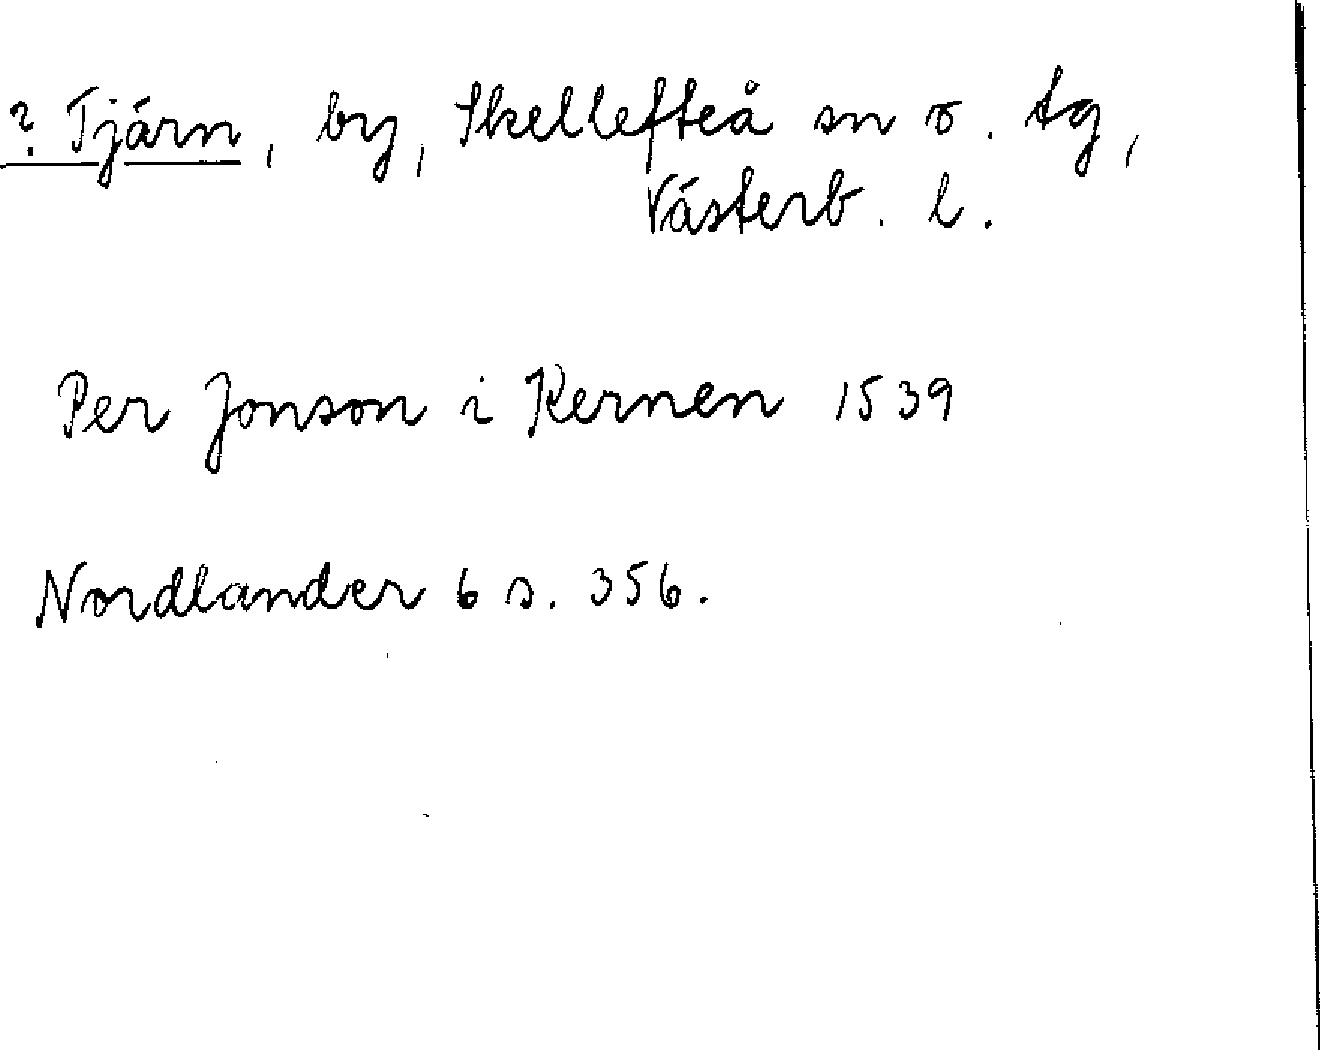 ? Tjärn, by, Skellefteå sn o. tg,
Västerb. l.
Per Jonson i Kernen 1539
Nordlander 6 s. 356.